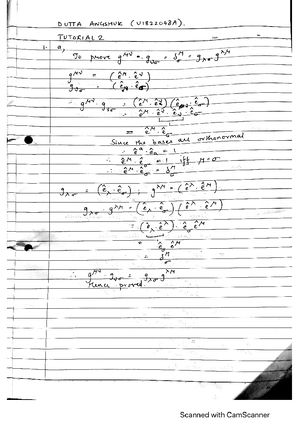 DUTTA ANGSHUK (U1822048A).
TUTORIAL 2
1. a,
To prove g^{μν} g_{νσ} = δ^μ_σ = g_{λσ} g^{λμ}
g^{μν} = (ê^μ · ê^ν)
g_{νσ} = (ê_ν · ê_σ)
∴ g^{μν} · g_{νσ} = (ê^μ · ê^ν)(ê_ν · ê_σ)
= ê^μ · ê^ν · ê_ν · ê_σ
= ê^μ · ê_σ
Since the bases are orthonormal
∴ ê^a · ê_a = 1
∴ ê^μ · ê_σ = 1 iff μ = σ
∴ ê^μ · ê_σ = δ^μ_σ
g_{λσ} = (ê_λ · ê_σ) ; g^{λμ} = (ê^λ · ê^μ)
g_{λσ} g^{λμ} = (ê_λ · ê_σ)(ê^λ · ê^μ)
= (ê_λ · ê^λ) · ê_σ ê^μ
= ê_σ ê^μ
= δ^μ_σ
∴ g^{μν} · g_{νσ} = g_{λσ} g^{λμ}
Hence proved
Scanned with CamScanner